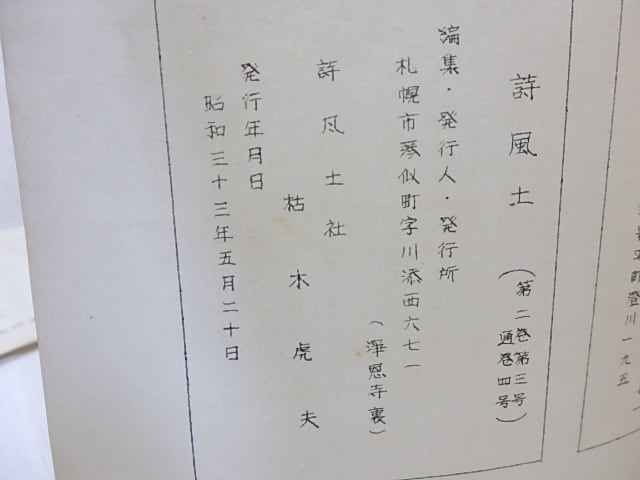 詩風土
(第二巻第三号
通巻四号)
編集・発行人・発行所
札幌市琴似町字川添西六七一
(淨恩寺裏)
詩風土社
枯木虎夫
発行年月日
昭和三十三年五月二十日
登川一九五